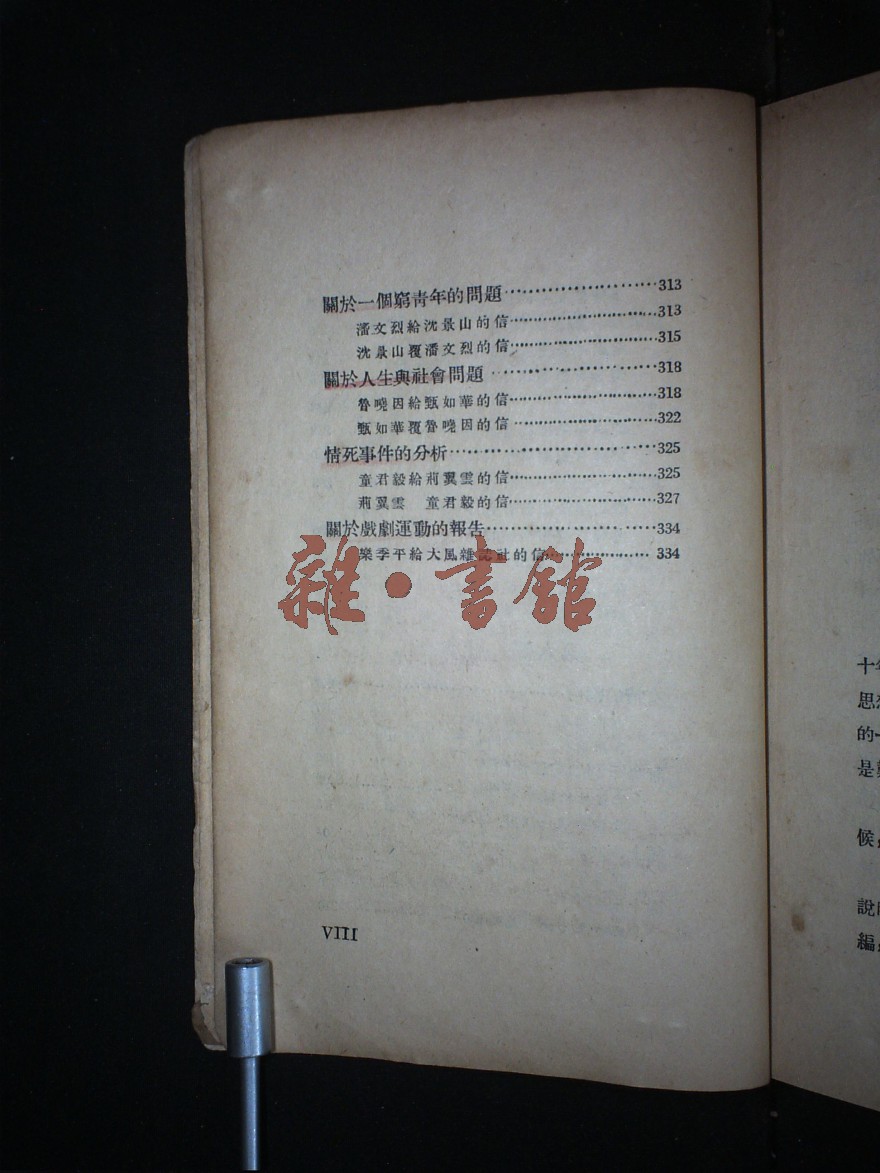 關於一個窮青年的問題……………………313
潘文烈給沈景山的信……………………313
沈景山覆潘文烈的信……………………315
關於人生與社會問題……………………318
魯曉因給甄如華的信……………………318
甄如華覆魯曉因的信……………………322
情死事件的分析……………………325
童君毅給荊翼雲的信……………………325
荊翼雲 童君毅的信……………………327
關於戲劇運動的報告……………………334
樂季平給大風雜誌社的信……………………334
雜·書館
VIII
十
思
的一
是
候
說
編